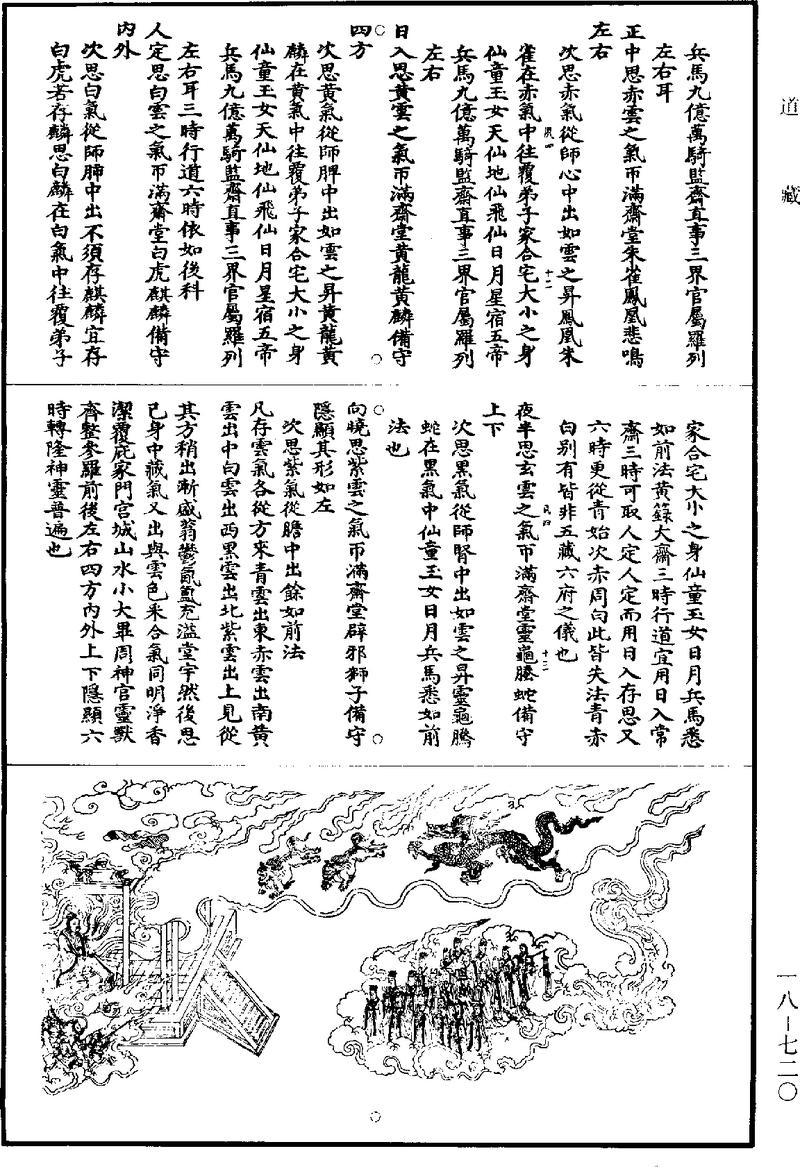 道藏
兵馬九億萬騎監齋直事三界官屬羅列
左右耳
正中思赤雲之氣帀滿齋堂朱雀鳳凰悲鳴
左右
次思赤氣從師心中出如雲之昇鳳凰朱
雀在赤氣中往覆弟子家合宅大小之身
仙童玉女天仙地仙飛仙日月星宿五帝
兵馬九億萬騎監齋直事三界官屬羅列
左右
日入思黃雲之氣帀滿齋堂黃龍黃麟備守
四方
次思黃氣從師脾中出如雲之昇黃龍黃
麟在黃氣中往覆弟子家合宅大小之身
仙童玉女天仙地仙飛仙日月星宿五帝
兵馬九億萬騎監齋直事三界官屬羅列
左右耳三時行道六時依如後科
人定思白雲之氣帀滿齋堂白虎麒麟備守
內外
次思白氣從師肺中出不須存麒麟宜存
白虎若存麟思白麟在白氣中往覆弟子
家合宅大小之身仙童玉女日月兵馬悉
如前法黃籙大齋三時行道宜用日入常
齋三時可取人定人定而用日入存思又
六時更從青始次赤周匃此皆失法青赤
白別有皆非五藏六府之儀也
夜半思玄雲之氣帀滿齋堂靈龜螣蛇備守
上下
次思黑氣從師腎中出如雲之昇靈龜騰
蛇在黑氣中仙童玉女日月兵馬悉如前
法也
向曉思紫雲之氣帀滿齋堂辟邪獅子備守
隱顯其形如左
次思紫氣從膽中出餘如前法
凡存雲氣各從方來青雲出東赤雲出南黃
雲出中白雲出西黑雲出北紫雲出上見從
其方稍出漸盛蓊鬱氤氳充溢堂宇然後思
己身中藏氣又出與雲色采合氣同明淨香
潔覆庇家門宮城山水小大畢周神官靈獸
齊整參羅前後左右四方內外上下隱顯六
時轉隆神靈普遍也
一八—七二〇